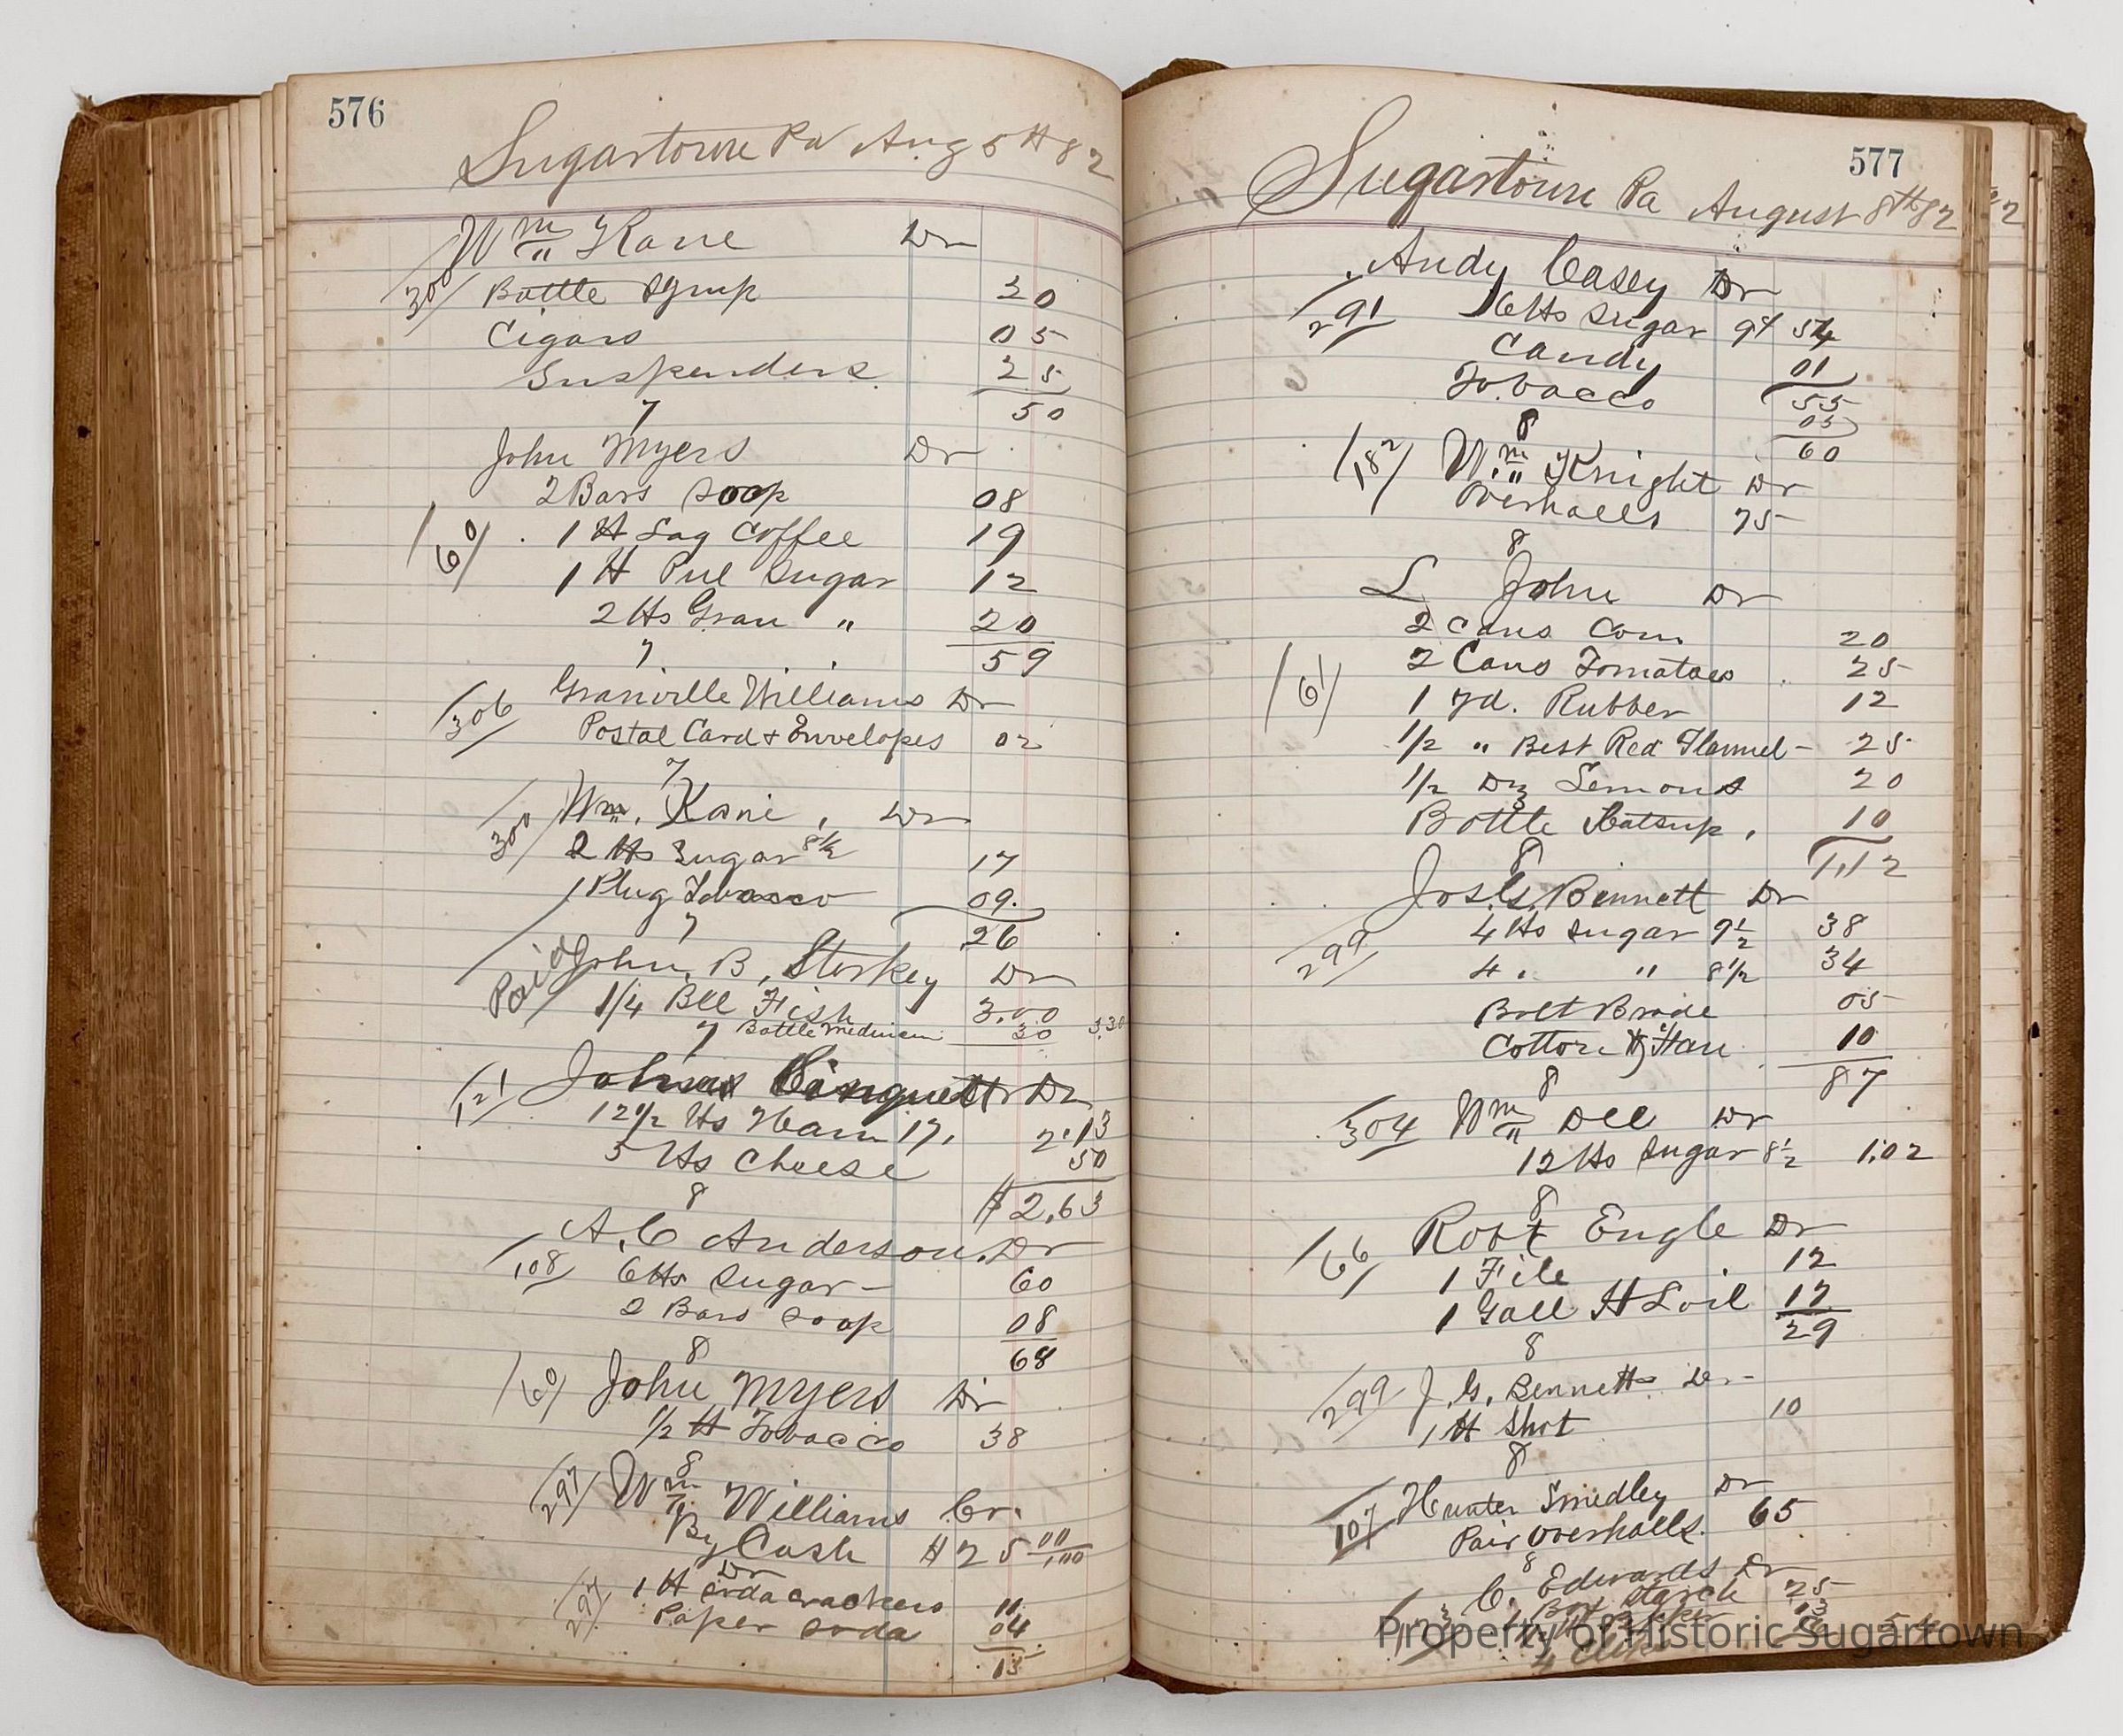 576
Sugartown Pa Aug 5th 82
Wm Kane Dr
300 Bottle Syrup 20
Cigars 05
Suspenders 25
50
7
John Myers Dr
2 Bars Soap 08
60 1 lb Lag Coffee 19
1 lb Pul Sugar 12
2 lbs Gran " 20
59
7
Granville Williams Dr
306 Postal Card & Envelopes 02
7
300 Wm. Kane, Dr
2 lbs Sugar 8½ 17
1 Plug Tobacco 09
26
7
Paid John. B, Storkey Dr
1/4 Bll Fish 3.00
7 Bottle Medicine 30 3.30
121 Dr
12½ lbs Ham 17, 2.13
5 lbs Cheese 50
$2,63
8
A, C Anderson. Dr
108 6 lbs Sugar – 60
2 Bars Soap 08
68
8
60 John Myers Dr
½ lb Tobacco 38
8
297 Wm Williams Cr.
By Cash $25 00/100
Dr
297 1 lb Soda crackers 11
Paper Soda 04
15
577
Sugartown Pa August 8th 82
Andy Casey Dr
291 6 lbs Sugar 9¢ 54
Candy 01
55
Tobacco 05
60
8
182 Wm Knight Dr
Overhalls 75
8
L John Dr
2 Cans Corn 20
61 2 Cans Tomatoes 25
1 yd. Rubber 12
1/2 " Best Red Flannel – 25
1/2 Dz Lemons 20
Bottle Catsup, 10
1,12
8
Jos. G. Bennett Dr
299 4 lbs Sugar 9½ 38
4 " " 8½ 34
Bolt Braide 05
Cotton 10
87
8
304 Wm Dell Dr
12 lbs Sugar 8½ 1.02
8
66 Robt Engle Dr
1 File 12
1 Gall H L oil 17
29
8
299 J. G. Bennett Dr –
1 lb Shot 10
8
107 Hunter Smedley Dr
Pair Overhalls. 65
8
C. Edwards Dr
Box Starch 25
13
Property of Historic Sugartown